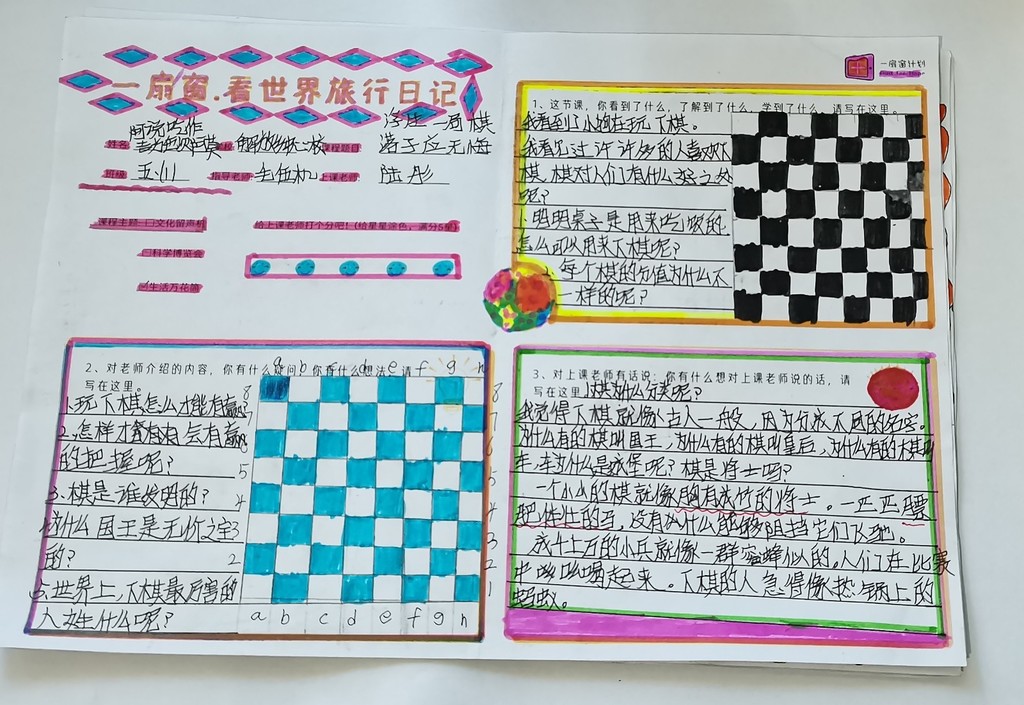 一扇窗.看世界旅行日记
一扇窗计划
姓名
课程题目
浮生一局棋
落子应无悔
班级 五、(1) 指导老师 上课老师 陆彤
课程主题 □文化留声机
□科学博览会
☑生活万花筒
给上课老师打个分吧!(给星星涂色,满分5星)
1、这节课,你看到了什么,了解到了什么,学到了什么,请写在这里。
我看到了小狗在玩下棋。
我看见过许许多多的人喜欢下
棋,棋对人们有什么好之处
呢?
1.明明桌子是用来吃饭的
怎么可以用来下棋呢?
每个棋的价值为什么不
一样的呢?
2、对老师介绍的内容,你有什么疑问,你有什么想法,请
写在这里。
1.玩下棋怎么才能有赢
2.怎样才有会有赢
的把握呢?
3.棋是谁发明的?
为什么国王是无价之宝
的?
5.世界上,下棋最厉害的
人姓什么呢?
a b d e f g h
8 7 6 5 4 3 2
8 7 6 5 4 3 2 1
a b c d e f g h
3、对上课老师有话说:你有什么想对上课老师说的话,请
写在这里。
棋为什么分类呢?
我觉得下棋就像古人一般,因为分成不同的名字。
为什么有的棋叫国王,为什么有的棋叫皇后,为什么有的棋叫
车,车为什么是城堡呢?棋是将士吗?
一个小小的棋就像胸有成竹的将士。一匹匹膘
肥体壮的马,没有为什么能够阻挡它们飞驰。
成千上万的小兵就像一群蜜蜂似的。人们在比赛
中吆吆喝起来。下棋的人急得像热锅上的
蚂蚁。